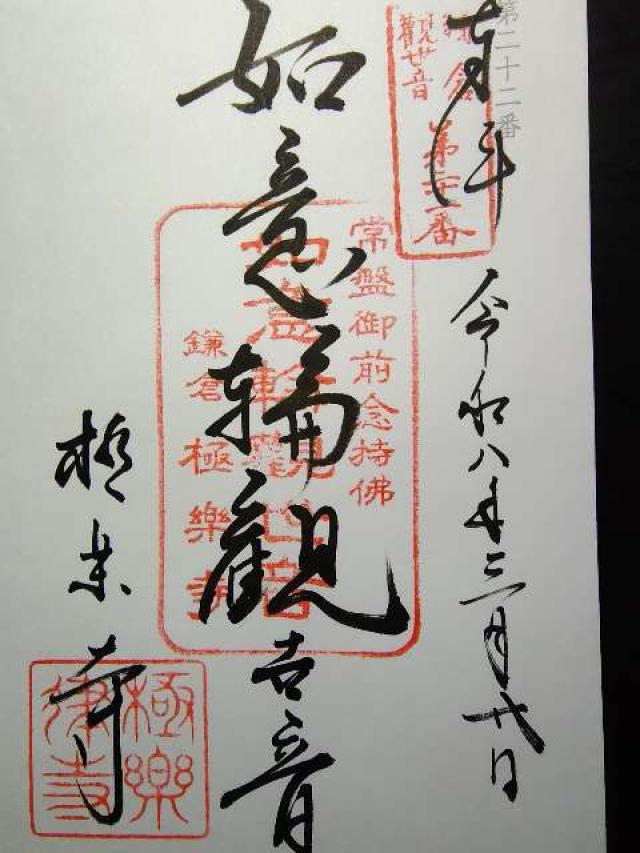 第二十二番
奉拝
令和八年三月廿日
鎌倉
観世音
第二十二番
如意輪観世音
常盤御前念持佛
如意輪観世音
鎌倉極樂寺
極楽寺
極樂律寺